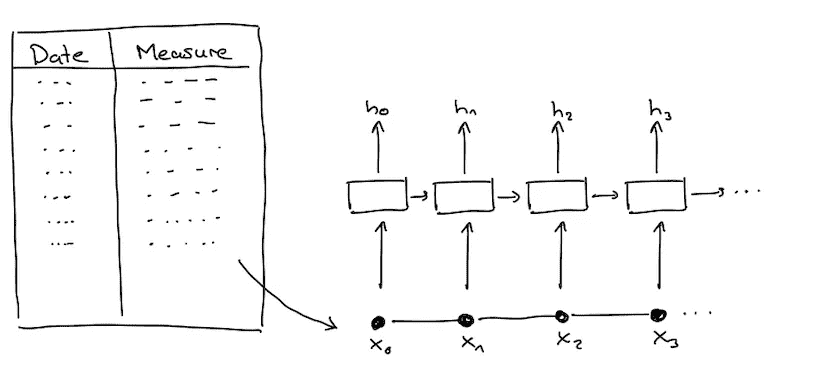 Date Measure
h0 h1 h2 h3
...
x0 x1 x2 x3 ...